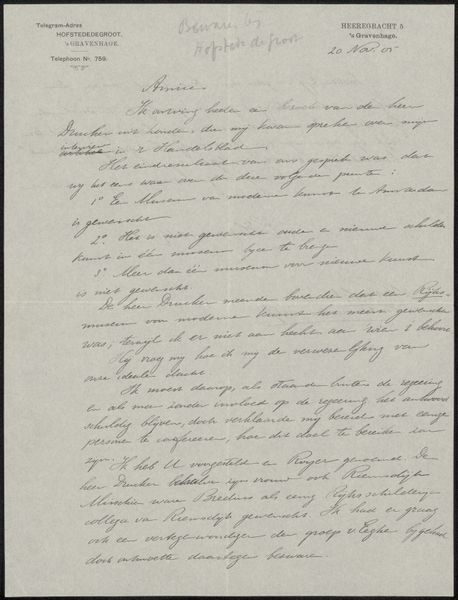 Telegram-Adres
HOFSTEDEDEGROOT.
's GRAVENHAGE.
Telephoon No. 759.
Bewaren bij
Hofstede de groot
HEEREGRACHT 5
's Gravenhage.
20 Nov. 05
Amice
Ik ontving heden een bezoek van de heer
Drucker uit Londen, die mij kwam spreken over mijn
interview in 't Handelsblad.
Het eindresultaat van ons gesprek was, dat
wij het eens waren over de drie volgende punten:
1o Een Museum van moderne kunst te Amsterdam
is gewenscht
2o. Het is niet gewenscht oude en nieuwe schilder
kunst in één museum bijeen te brengen
3o Meer dan één museum voor nieuwe kunst
is niet gewenscht
De heer Drucker meende bovendien dat een Rijks-
museum van moderne kunst het meest gewenscht
was; terwijl ik er niet aan hecht aan wien 't behoort
Hij vroeg mij hoe ik mij de verwezenlijking van
onze idealen dacht
Ik moest daarop, als staande buiten de regeering
en als man zonder invloed op de regeering, het antwoord
schuldig blijven, doch verklaarde mij bereid met eenige
personen te confereeren, hoe dit doel te bereiken zou
zijn.
Ik heb U voorgesteld en Royer genoemd. De
heer Drucker zijn vrouw ook Riemsdijk
Misschien ware Bredius als eenig Rijks schilderij
collega van Riemsdijk gewenscht. Ik had er graag
ook een vertegenwoordiger der groep v. Eeghen bij gehad
doch ontmoette daartegen bezwaren.